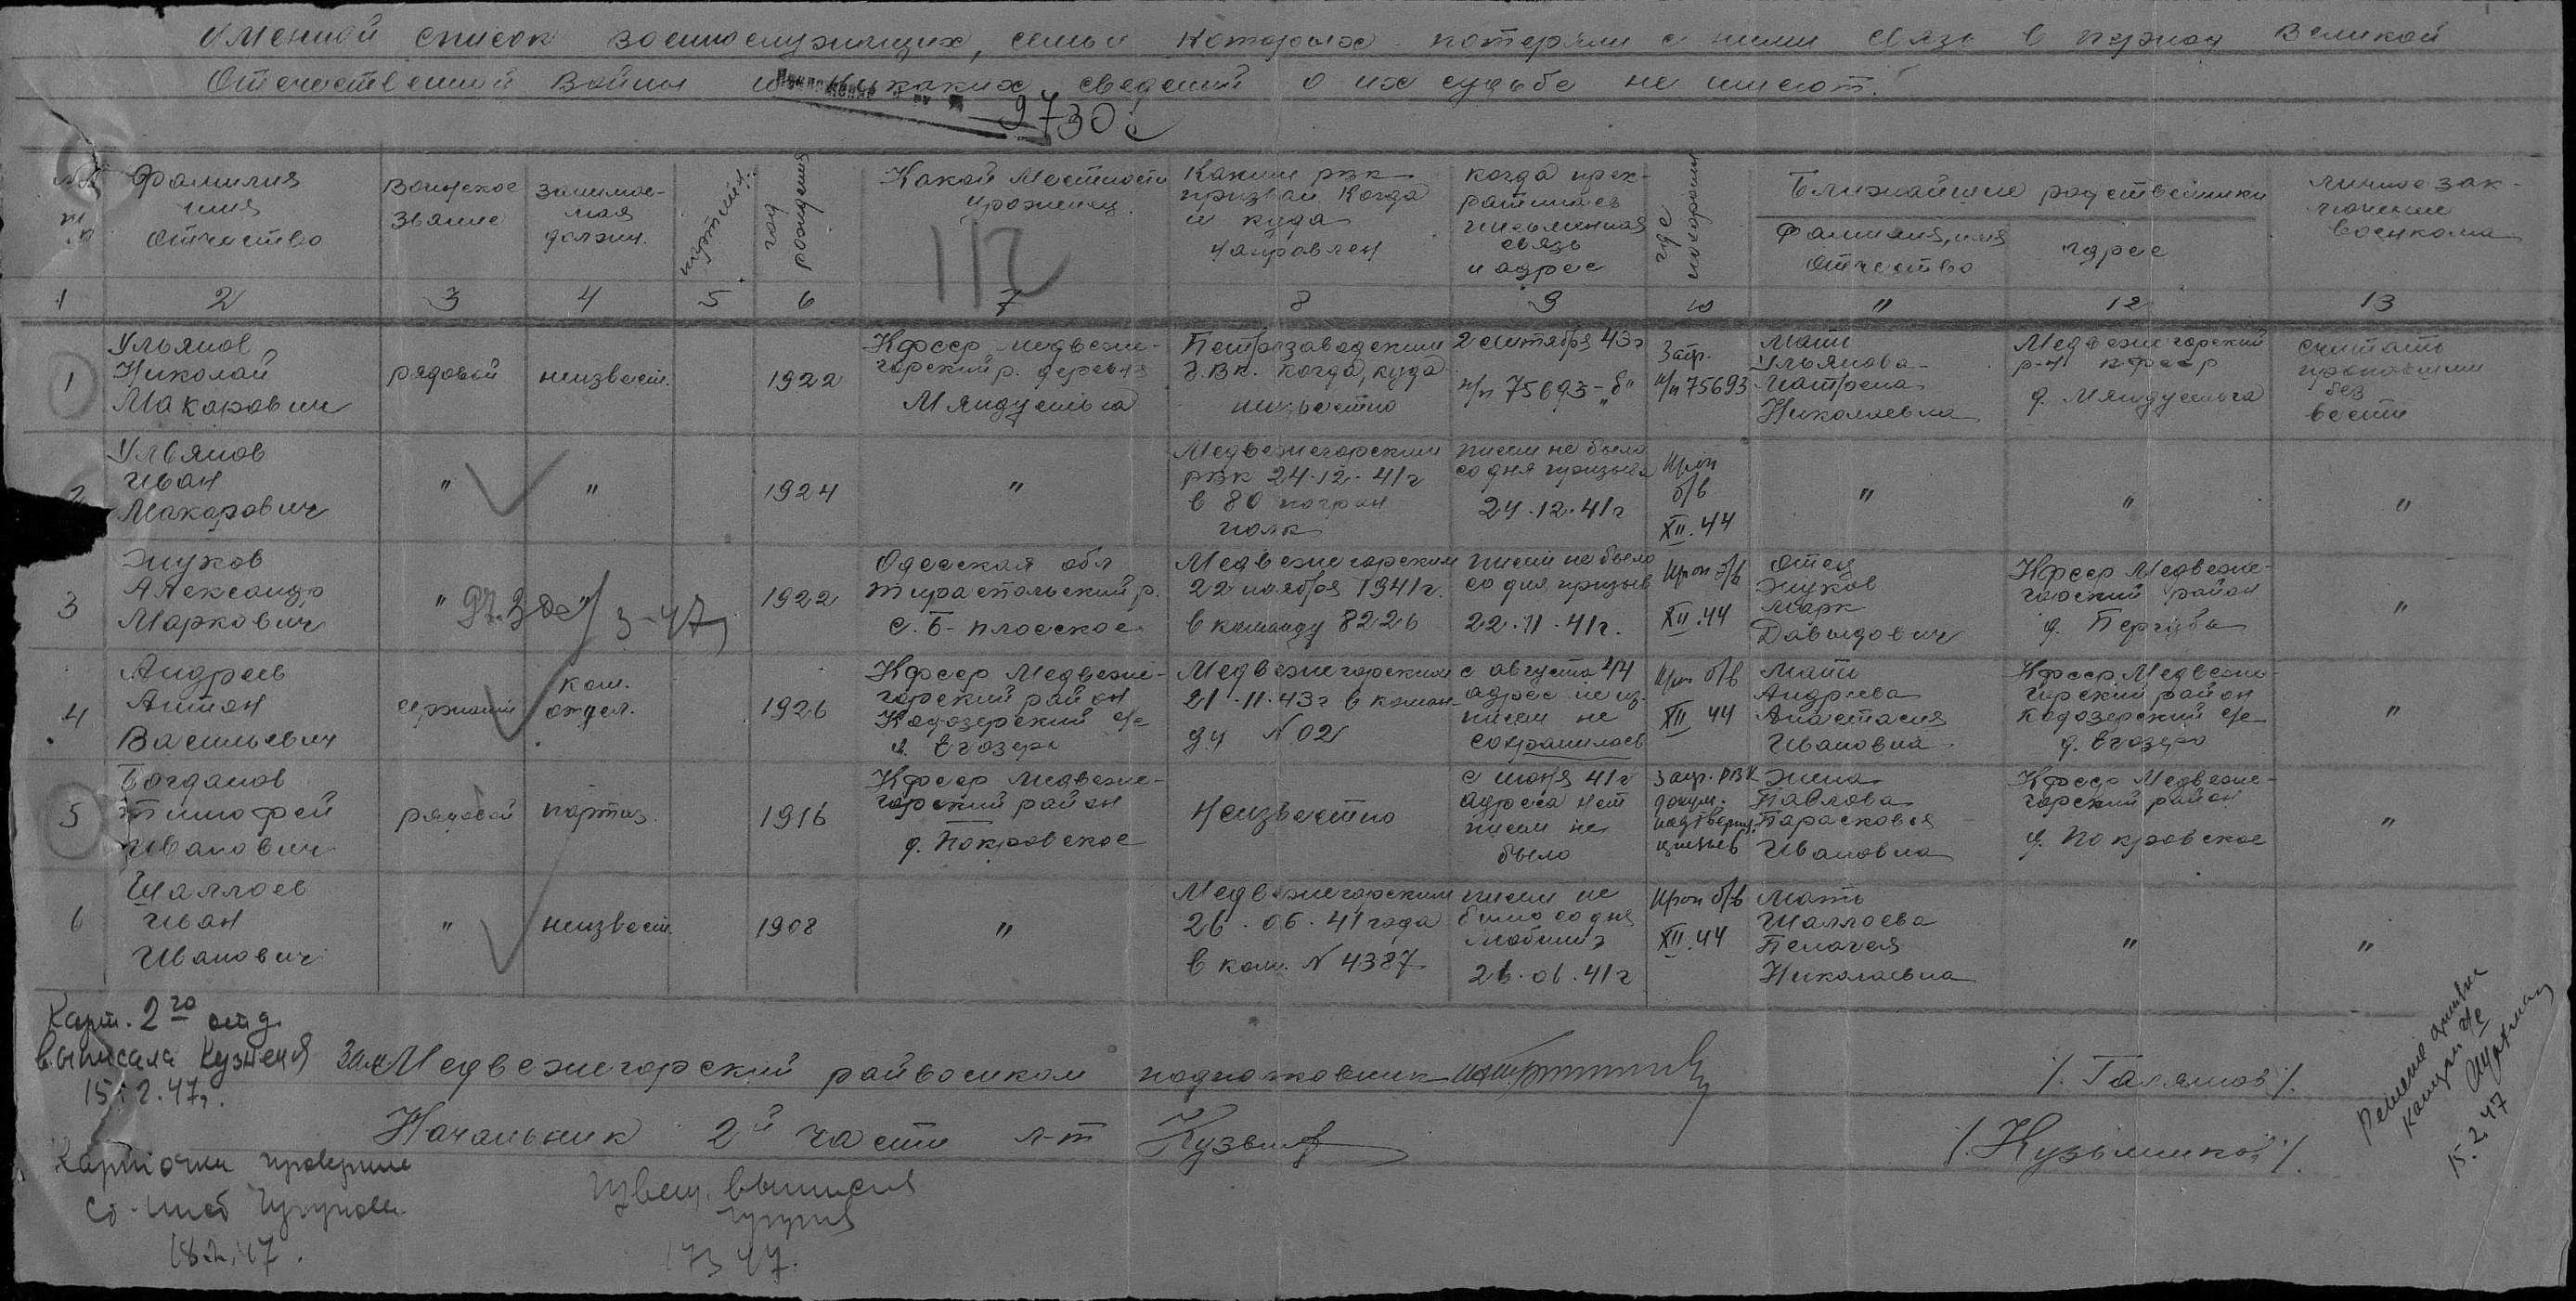 Именной список военнослужащих, семьи которых потеряли с ними связь в период Великой
Отечественной Войны и никаких сведений о их судьбе не имеют.
9730с
№№ п.п
Фамилия имя отчество
Воинское звание
занимаемая должн.
партийн.
год рождения
Какой местности урожен.
112
Каким рвк призван когда и куда направлен
когда прекратилась письменная связь и адрес
где похоронен
Ближайшие родственники
Фамилия, имя отчество
адрес
личное заключение военкома
1 2 3 4 5 6 7 8 9 10 11 12 13
1
Ульянов
Николай
Макарович
рядовой
неизвест.
1922
Кфсср Медвеже-
горский р. деревня
Мяндусельга
Петрозаводским
г.вк. когда, куда
неизвестно
2 сентября 43г
п/п 75693-"б"
Запр.
п/п 75693
Мать
Ульянова
Матрена
Николаевна
Медвежегорский
р-н кфсср
д. Мяндусельга
считать
пропавшим
без
вести
2
Ульянов
Иван
Макарович
"
"
1924
"
Медвежегорским
рвк 24.12.41г
в 80 погран
полк
писем не было
со дня призыва
24.12.41г
Проп
б/в
XII.44
"
"
"
3
Жуков
Александр
Маркович
"
"
3-47г
1922
Одесская обл
Тираспольский р.
с. Б-плосское
Медвежегорским
22 ноября 1941г.
в команду 8226
писем не было
со дня призыв
22.11.41г.
Проп б/в
XII.44
Отец
Жуков
Марк
Давыдович
Кфсср Медвеже-
горский район
д. Пергуба
"
4
Андреев
Антон
Васильевич
сержант
ком.
отдел.
1926
Кфсср Медвеже-
горский район
Кодозерский с/с
д. Егозеро
Медвежегорским
21.11.43г в коман-
ду №02
с августа 44
адрес не из.
писем не
сохранилось
Проп б/в
XII.44
Мать
Андреева
Анастасия
Ивановна
Кфсср Медвеже-
горский район
Кодозерский с/с
д. Егозеро
"
5
Богданов
Тимофей
Иванович
рядовой
партиз.
1916
Кфсср Медвеже-
горский район
д. Покровское
Неизвестно
с июня 41г
адреса нет
писем не
было
запр. РВК
докум.
Жена
Павлова
Парасковья
Ивановна
Кфсср Медвеже-
горский район
д. Покровское
"
6
Шаллоев
Иван
Иванович
"
неизвест.
1908
"
Медвежегорским
26.06.41 года
в ком. №4387
писем не
было со дня
мобилиз
26.06.41г
Проп б/в
XII.44
Мать
Шаллоева
Пелагея
Николаевна
"
"
Карт. 2го отд.
выписала Кузнец
15.2.47г.
Зам Медвежегорский райвоенком подполковник
/. Галямов/.
Начальник 2й части л-т Кузьмин
/. Кузьминков/.
Карточки проверил
18.2.47.
Извещ. выписал
17 3 47.
Решение
15.2.47